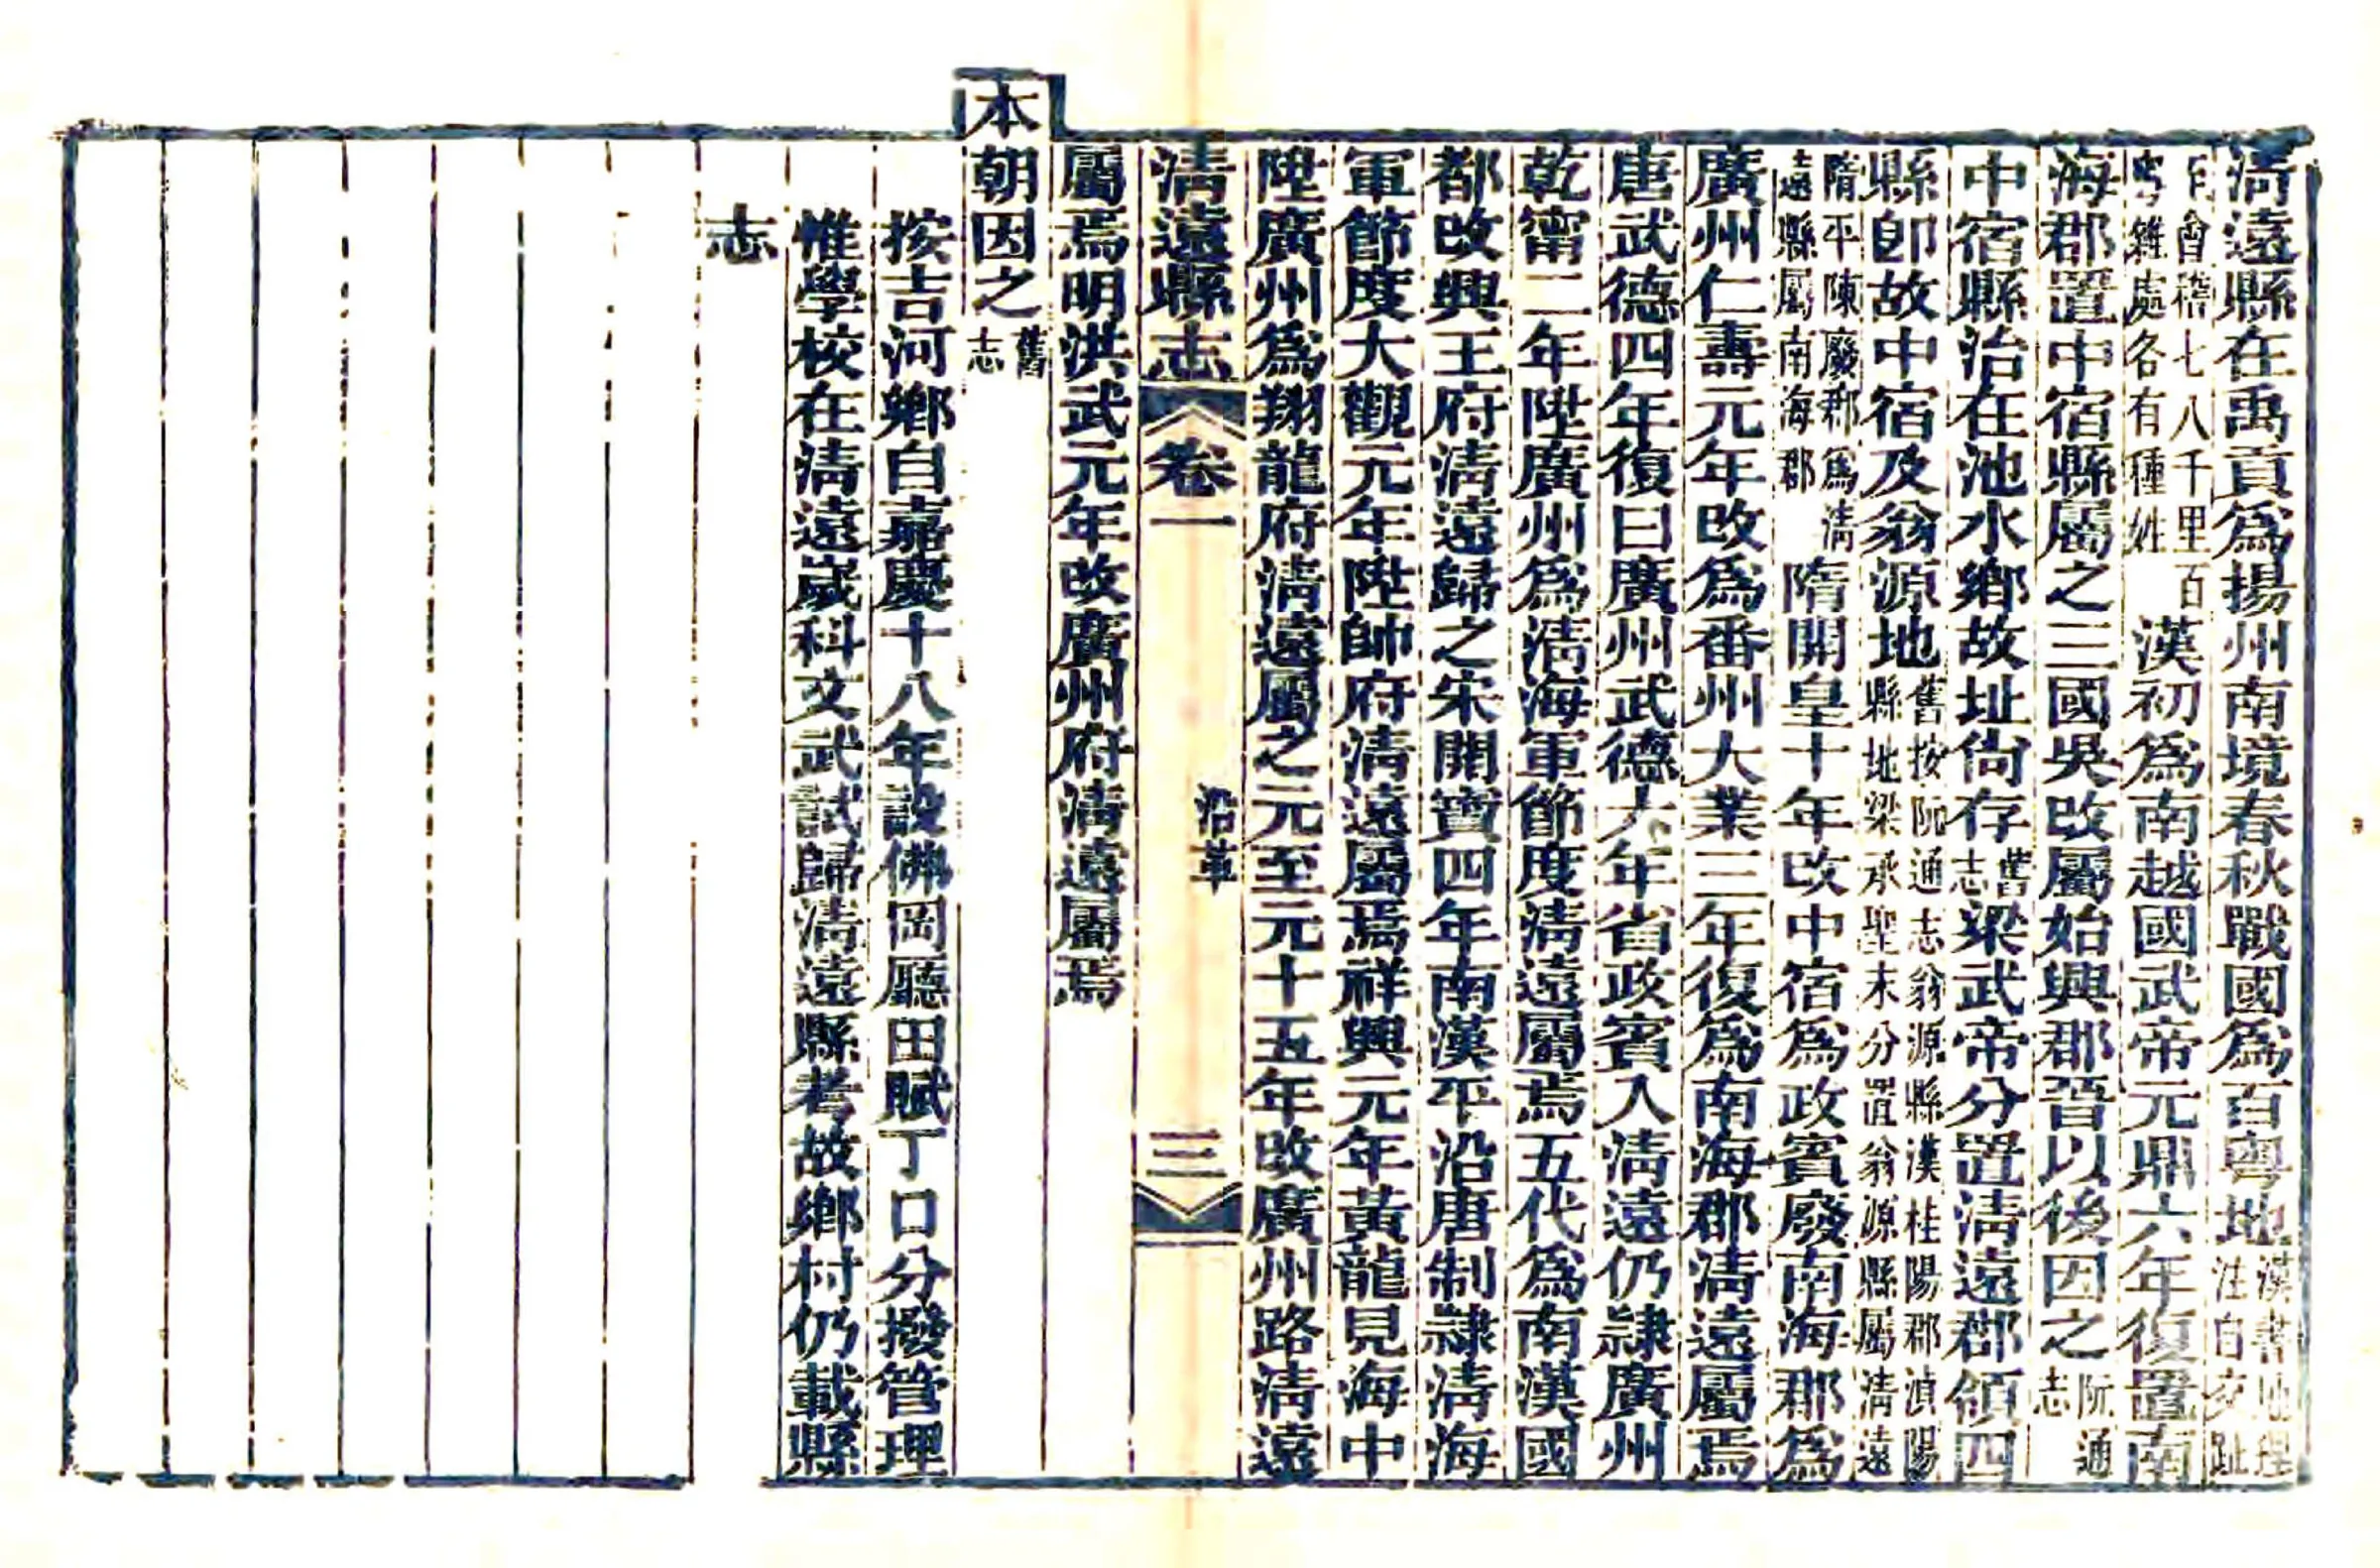 清遠縣在禹貢爲揚州南境春秋戰國爲百粤地漢書地理注自交趾
至會稽七八千里百粤雜處各有種姓漢初爲南越國武帝元鼎六年復置南
海郡置中宿縣屬之三國吳改屬始興郡晉以後因之阮通志
中宿縣治在池水鄉故址尙存舊志梁武帝分置清遠郡領四
縣卽故中宿及翁源地舊按阮通志翁源縣漢桂陽郡湞陽縣地梁承聖末分置翁源縣屬清遠
隋平陳廢郡爲清遠縣屬南海郡隋開皇十年改中宿爲政賓廢南海郡爲
廣州仁壽元年改爲番州大業三年復爲南海郡清遠屬焉
唐武德四年復曰廣州武德六年省政賓入清遠仍隷廣州
乾甯二年陞廣州爲清海軍節度清遠屬焉五代爲南漢國
都改興王府清遠歸之宋開寶四年南漢平沿唐制隷清海
軍節度大觀元年陞帥府清遠屬焉祥興元年黃龍見海中
陞廣州爲翔龍府清遠屬之元至元十五年改廣州路清遠
清遠縣志 卷一 沿革 三
屬焉明洪武元年改廣州府清遠屬焉
本朝因之舊志
按吉河鄉自嘉慶十八年設佛岡廳田賦丁口分撥管理
惟學校在清遠歲科文武試歸清遠縣考故鄉村仍載縣
志